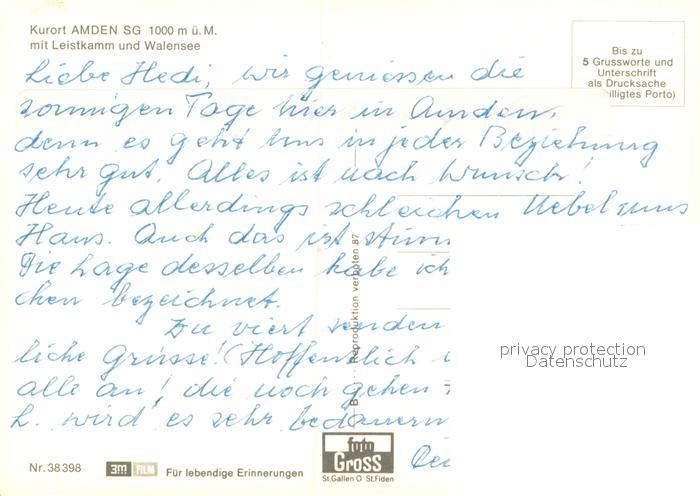 Kurort AMDEN SG 1000 m ü. M.
mit Leistkamm und Walensee
Bis zu
5 Grussworte und
Unterschrift
als Drucksache
illigtes Porto)
Liebe Hedi, wir geniessen die
sonnigen Tage hier in Amden,
denn es geht uns in jeder Beziehung
sehr gut. Alles ist nach Wunsch!
Heute allerdings schleichen Nebel ums
Haus. Auch das ist
Die Lage desselben habe ich
chen bezeichnet.
Zu viert senden
liche Grüsse! (Hoffentlich
alle an! die noch gehen
L. wird es sehr bedauern
Reproduktion verboten 87
privacy protection
Datenschutz
Nr. 38398
3M FILM
Für lebendige Erinnerungen
foto
Gross
St.Gallen O St.Fiden